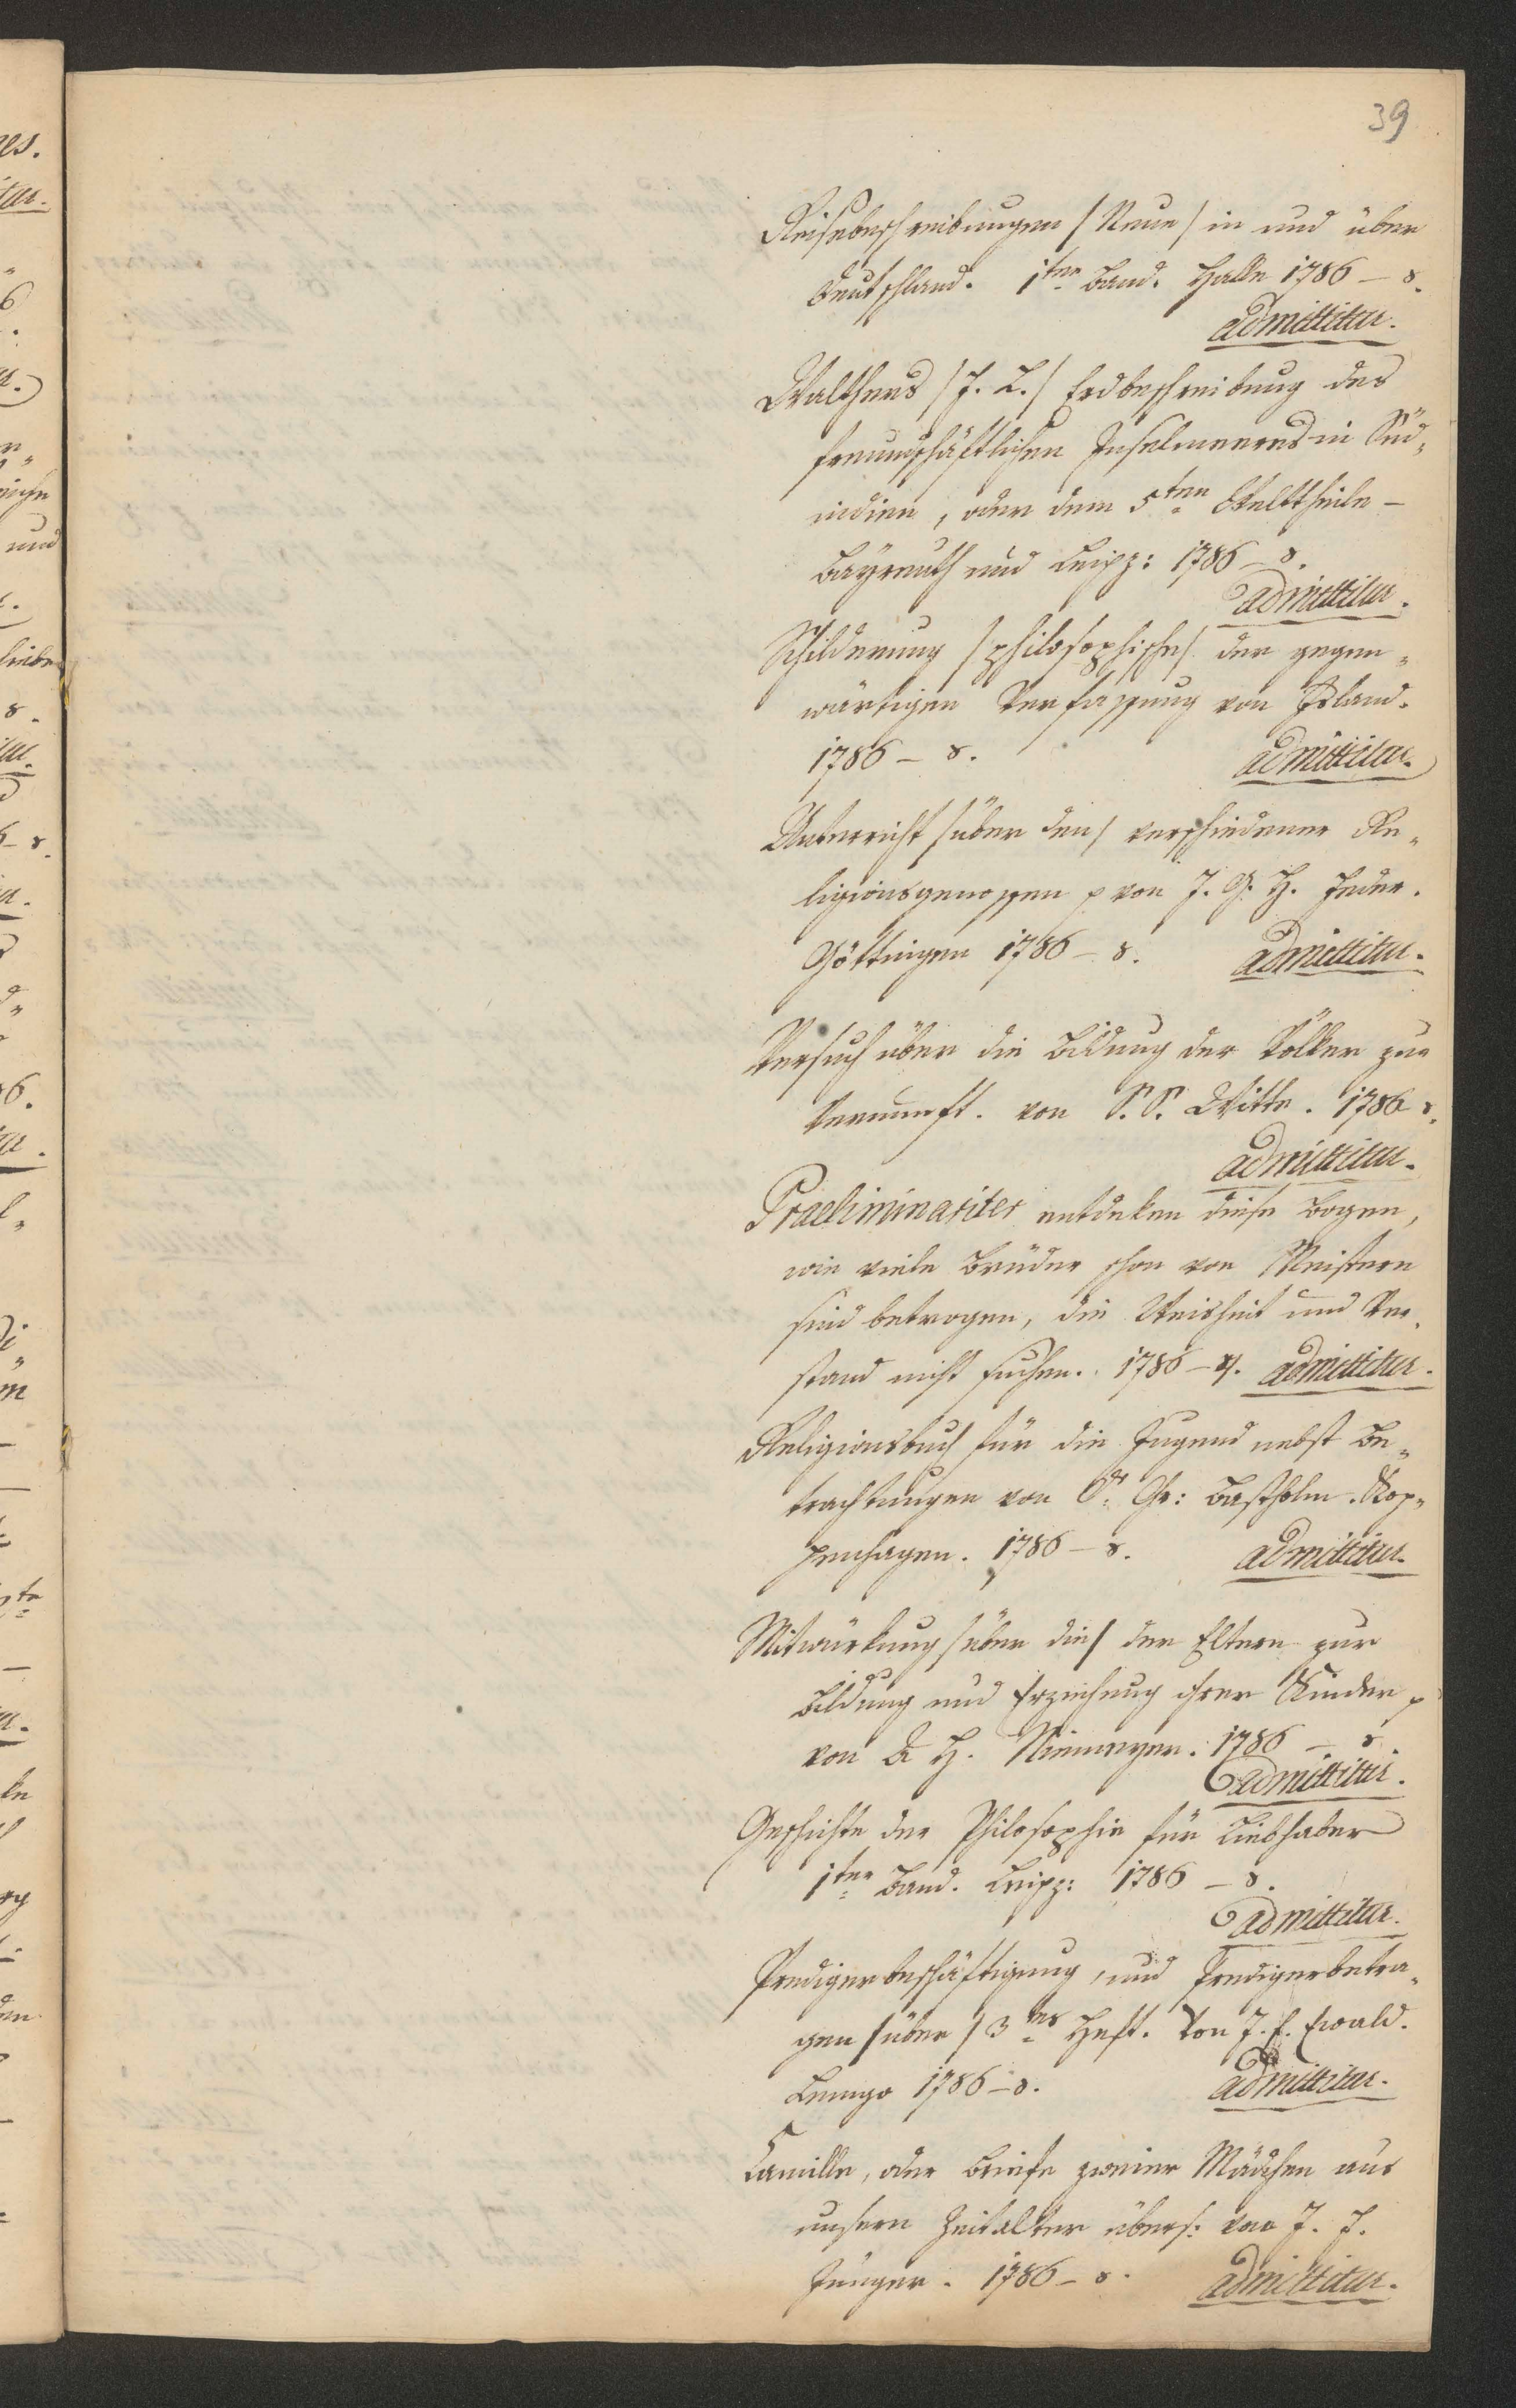 39
Reisebeschreibungen /Neue/ in und über
Deutschland. 1ter Band. Halle 1786 – 8.
admittitur.
Walthers /J. L./ Erdbeschreibung des
freundschäftlichen Inselmeeres in Süd„
indien, oder dem 5ten Welttheile –
Bayreuth und Leipz: 1786 – 8.
admittitur.
Schilderung /philosophische/ der gegen„
wärtigen Verfassung von Island.
1786 – 8. admittitur.
Unterricht /über den/ verschiedener Re„
ligionsgenossen p von J. G. H. Feder.
Göttingen 1786 – 8. admittitur.
Versuch über die Bildung der Völker zur
Vernunft. von S. S. Witte. 1786 8.
admittitur.
Praeliminariter entdeken diese Bogen,
wie viele Brüder schon von Meistern
sind betrogen, die Weisheit und Ver„
stand nicht suchen. 1786 – 4. admittitur.
Religionsbuch für die Jugend nebst Be„
trachtungen von Dr Chr: Bastholm. Kop„
penhagen. 1786 – 8. admittitur.
Mitwürkung /über die/ der Eltern zur
Bildung und Erziehung ihrer Kinder p
von A H. Niemeyer. 1786 – 8
admittitur.
Geschichte der Philosophie für Liebhaber
1ter Band. Leipz: 1786 – 8.
admittitur.
Predigerbeschäftigung, und Predigerbetra„
gen /über/ 3tes Heft. Von J. L. Ewald.
Lemgo 1786 – 8. admittitur.
Camille, oder Briefe zweier Mädchen aus
unserm Zeitalter übers: von J. F.
Jünger. 1786 – 8. admittitur.